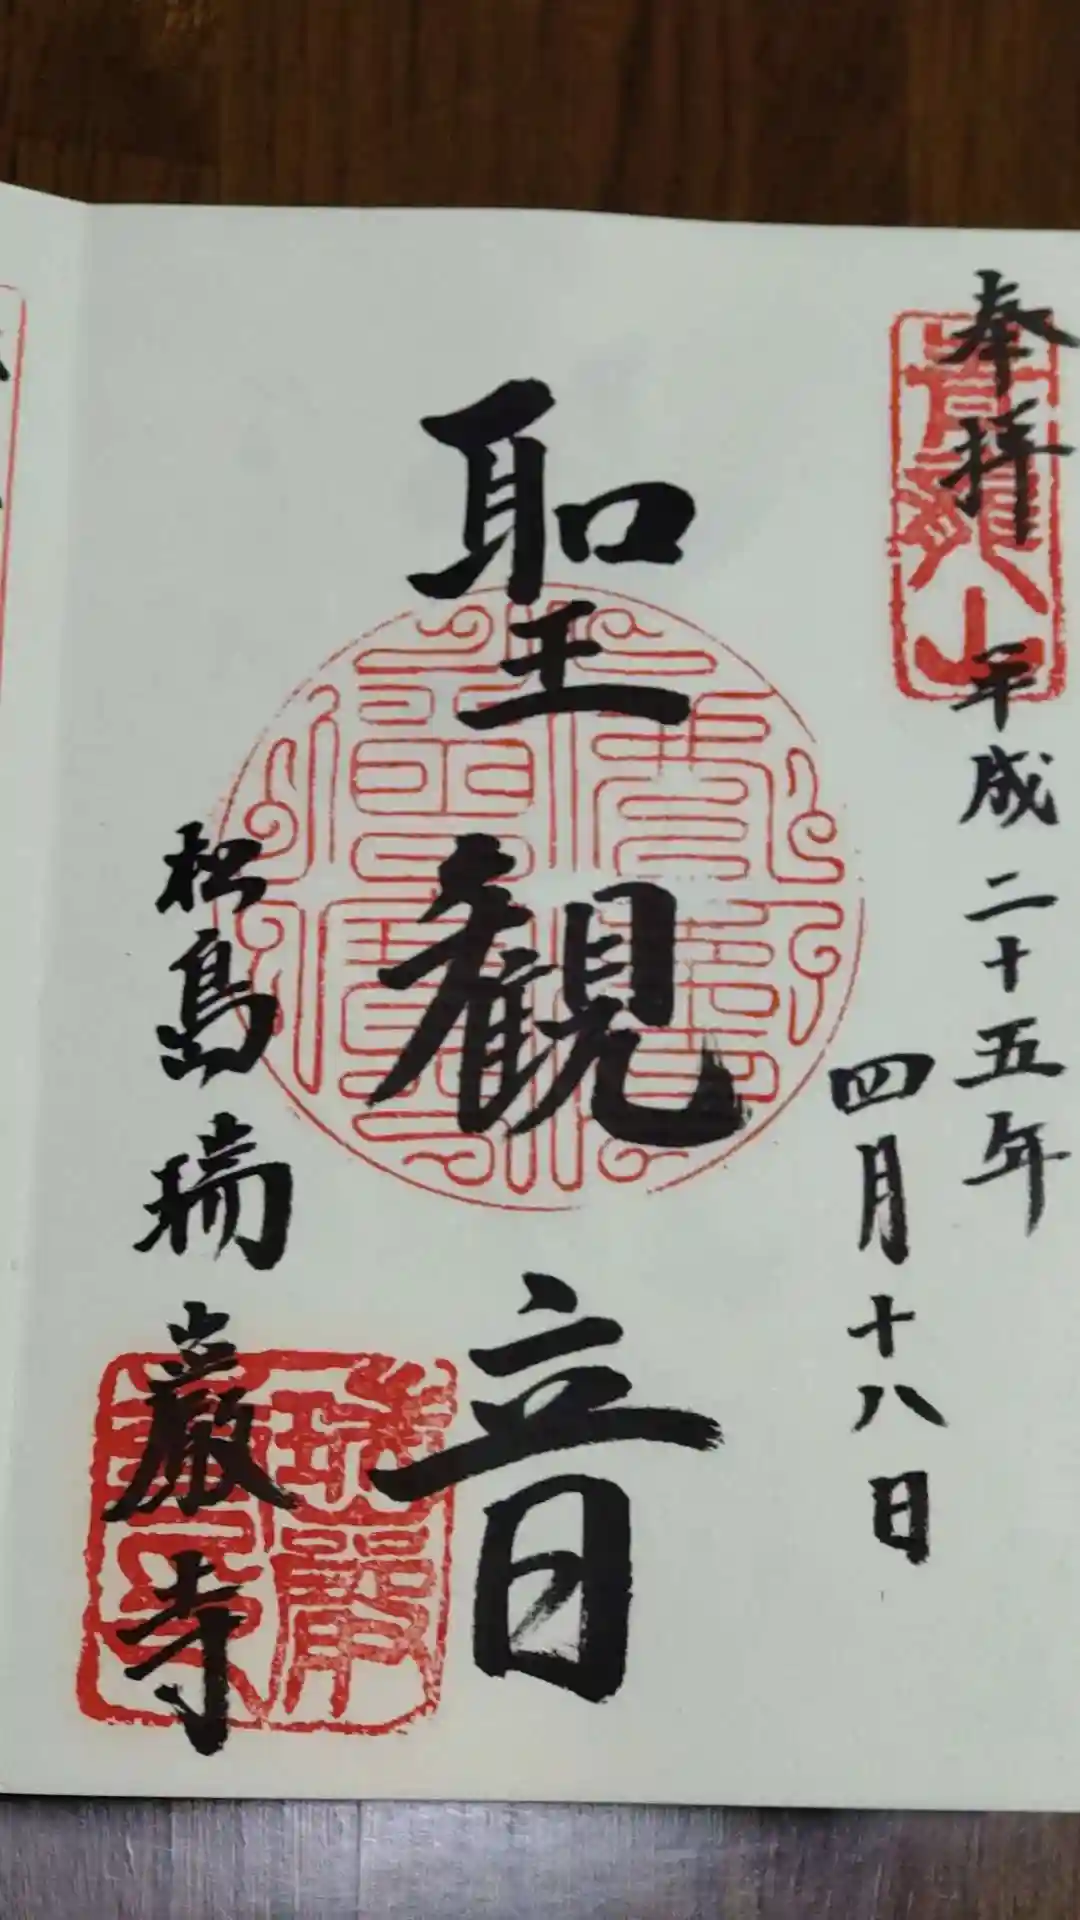 奉拝
平成二十五年
四月十八日
聖観音
松島瑞巌寺
瑞巌